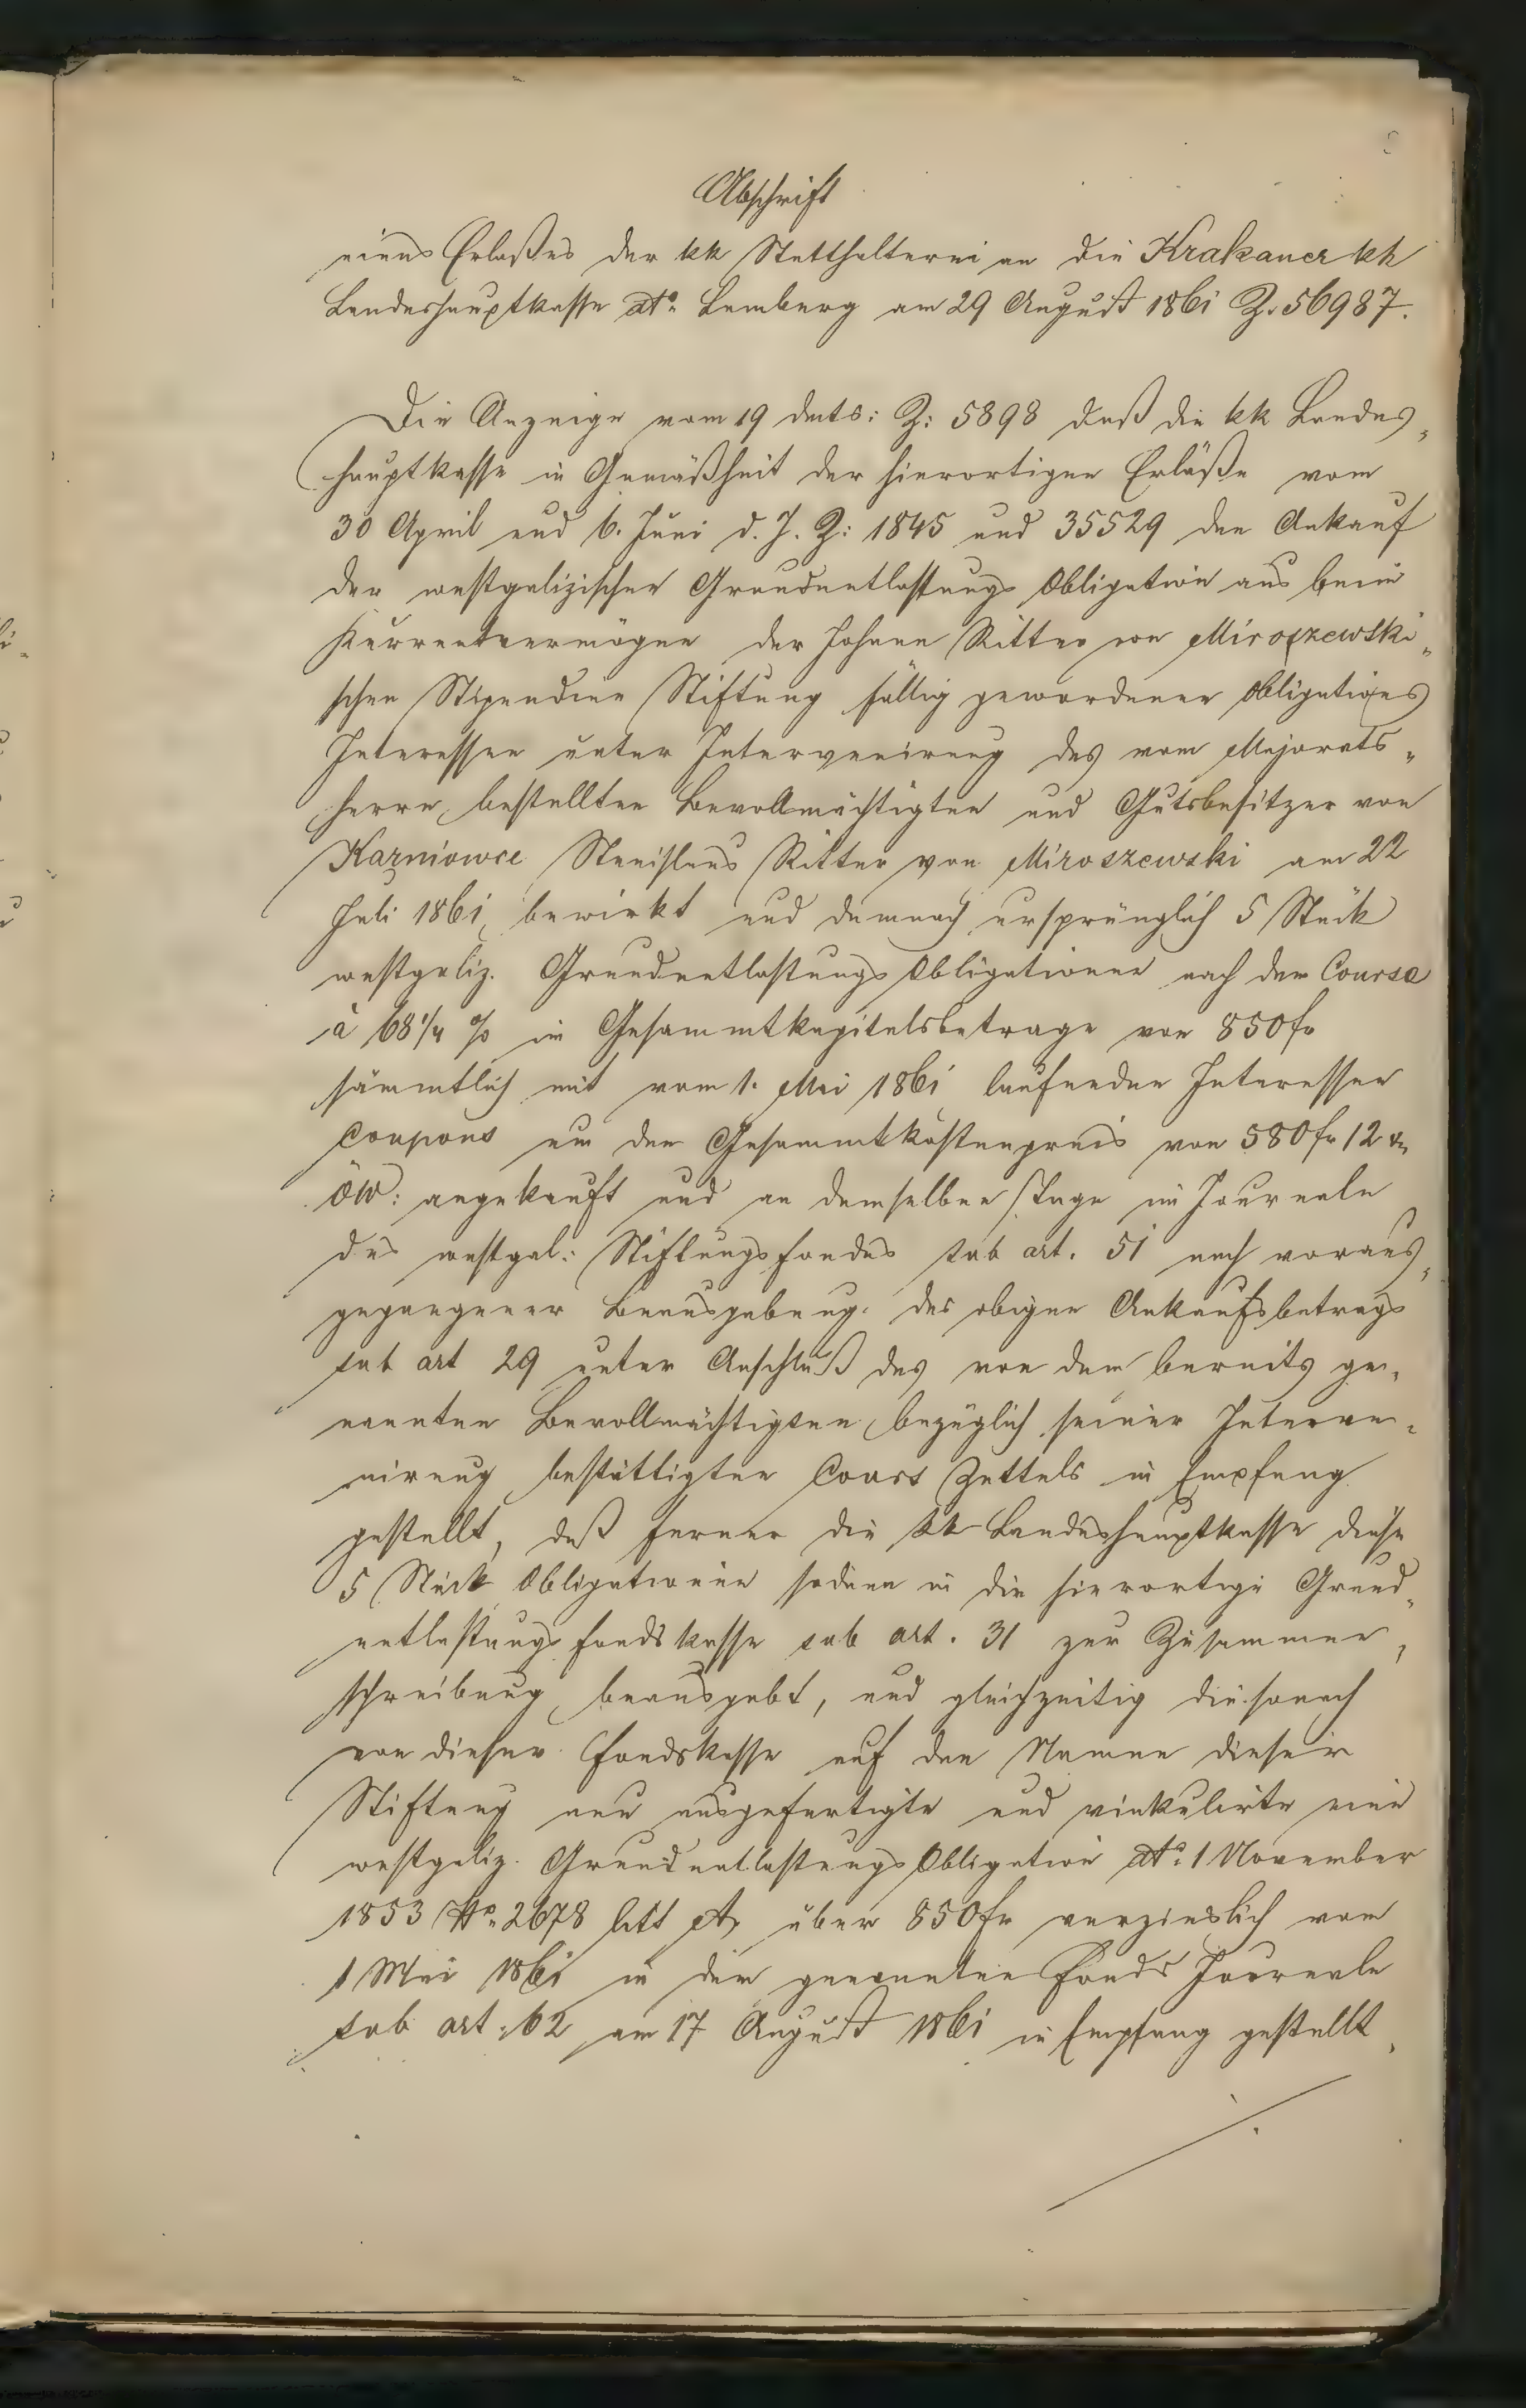 Abschrift
eines Erlaßes der kk Statthalterei an die Krakauer kk
Landeshauptkasse dto. Lemberg am 29 August 1861 Z. 56987.
Die Anzeige vom 19 dmts: Z: 5898 daß die kk Landes„
hauptkasse in Gemäßheit der hierortigen Erläße vom
30 April und 6. Juni d. J. Z: 1845 und 35529 den Ankauf
der westgalizischen Grundentlastungs Obligation aus beim
Kurrentvermögen der Johann Ritter von Miroszewski„
schen Stipendien Stiftung fällig gewordener Obligations
Interessen unter Intervenirung des vom Majorats„
herrn bestellten Bevollmächtigten und Gutsbesitzer von
Karniowce Stanislaus Ritter von Miroszewski am 22
Juli 1861 bewirkt und demnach ursprünglich 5 Stück
westgaliz. Grundentlastungs Obligationen nach dem Course
à 68 1/4 % im Gesammtkapitalsbetrage von 850 fr
sämmtlich mit vom 1. Mai 1861 laufenden Interessen
Coupons um den Gesammtkostenpreis von 580 fr 12 xr
öW: angekauft und an demselben Tage im Journale
des westgal: Stiftungsfondes sub art. 51 nach voraus„
gegangener Beausgabung des obigen Ankaufsbetrags
sub art 29 unter Anschluß des von dem bereits ge„
nannten Bevollmächtigten bezüglich seiner Interve„
nirung bestättigten Cours Zettels in Empfang
gestellt, daß ferner die kk Landeshauptkasse diese
5 Stück Obligationen sodann in die hierortige Grund„
entlastungs fondskasse sub art. 31 zur Zusammen„
schreibung beausgabt, und gleichzeitig die sonach
von dieser Fondskasse auf den Namen dieser
Stiftung neu ausgefertigte und vinkulirte eine
westgaliz. Grundentlastungs Obligation dto. 1 November
1853 No. 2678 litt A, über 850 fr verzinslich vom
1 Mai 1861 in dem genannten Fonds Journale
sub art. 62 am 17 August 1861 in Empfang gestellt